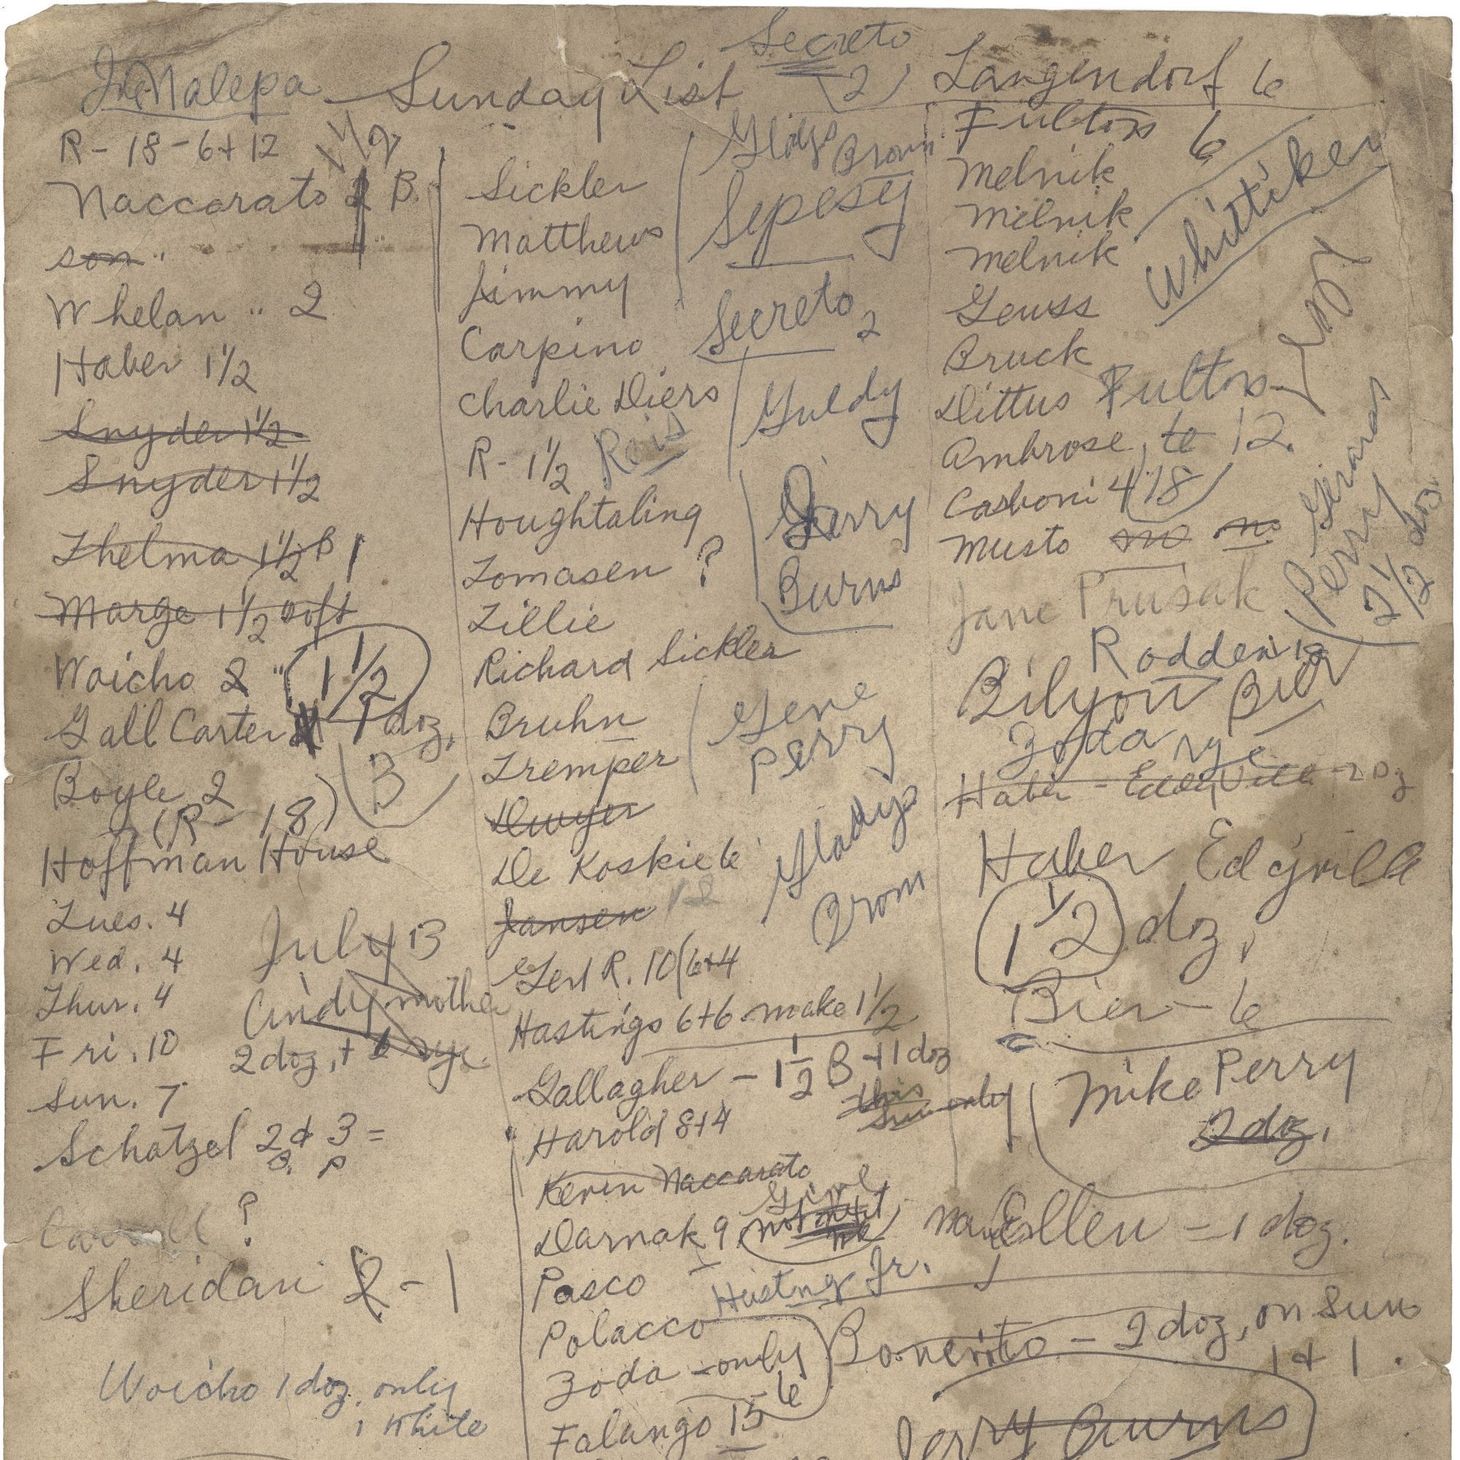 Sunday List
Secreto
(2)
Langendorf 6
R - 18 - 6 + 12
Naccarato 2 B.
son "
Whelan " 2
Haber 1½
Snyder 1½
Snyder 1½
Thelma 1½ B 1
Marge 1½ soft
Woicho 2 " 1½
Gall Carter 1 doz.
Boyle 2
3
(R - 18)
Hoffman House
Tues. 4
Wed. 4
Thur. 4
Fri. 10
Sun. 7
July 13
Cindy mother
2 doz, + 6 rye
Schatzel 2 & 3 =
B. P
Carroll ?
Sheridan 2 - 1
Woicho 1 doz. only
1 white
Sickler
Matthews
Jimmy
Carpino
Charlie Diers
R - 1½ Reis
Houghtaling
Tomasen ?
Lillie
Richard Sickler
Bruhn
Tremper
Dwyer
De Koskie 6
Jansen 12
Gert R. 10 (6+4
Hastings 6+6 make 1½
Gallagher - 1½ B + 1 doz
this Sun only
Harold 8+4
Kevin Naccarato
Darnak 9
Pasco
Hastings Jr.
Polacco
Zoda - only 6
Falango 15
Gladys Brown
Sepesy
Secreto 2
Guldy
Gerry
Burns
Gene
Perry
Gladys
Brown
Fultons 6
Melnik
Melnik
Melnik
Whittiker
Geuss
Bruck
Dittus Fultons
Ambrose, te 12.
Casboni 4 18
Musto no no
Perry
2½ doz
Jane Prusak
Rodden
Bilyou Bier
Zoda rye
Haber Edgville
1½ doz,
Bier - 6
Mike Perry
2 doz.
Mary Ellen - 1 doz.
Bonerito - 2 doz, on Sun
1 + 1.
Jerry Burns